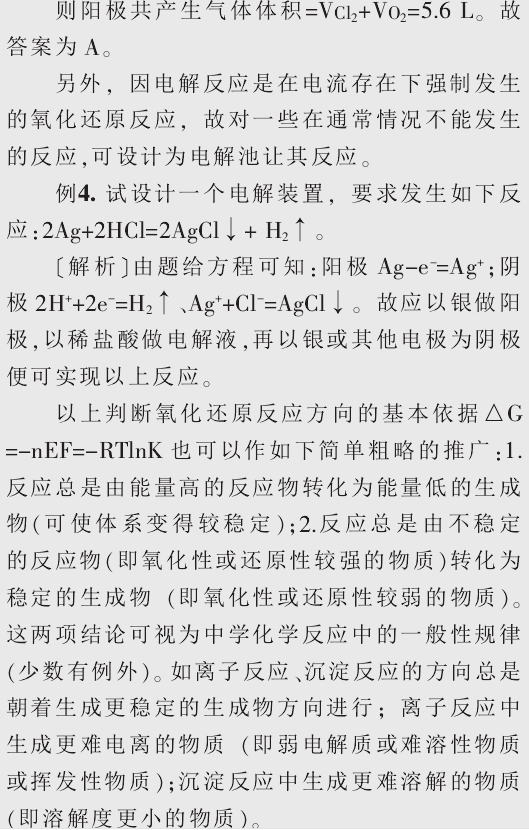 则阳极共产生气体体积=VCl₂+VO₂=5.6 L。故
答案为 A。
另外，因电解反应是在电流存在下强制发生
的氧化还原反应，故对一些在通常情况不能发生
的反应,可设计为电解池让其反应。
例4. 试设计一个电解装置，要求发生如下反
应:2Ag+2HCl=2AgCl↓+ H₂↑。
〔解析〕由题给方程可知:阳极 Ag-e⁻=Ag⁺;阴
极 2H⁺+2e⁻=H₂↑、Ag⁺+Cl⁻=AgCl↓。故应以银做阳
极,以稀盐酸做电解液,再以银或其他电极为阴极
便可实现以上反应。
以上判断氧化还原反应方向的基本依据△G
=-nEF=-RTlnK 也可以作如下简单粗略的推广:1.
反应总是由能量高的反应物转化为能量低的生成
物(可使体系变得较稳定);2.反应总是由不稳定
的反应物(即氧化性或还原性较强的物质)转化为
稳定的生成物 (即氧化性或还原性较弱的物质)。
这两项结论可视为中学化学反应中的一般性规律
(少数有例外)。如离子反应、沉淀反应的方向总是
朝着生成更稳定的生成物方向进行；离子反应中
生成更难电离的物质 (即弱电解质或难溶性物质
或挥发性物质);沉淀反应中生成更难溶解的物质
(即溶解度更小的物质)。